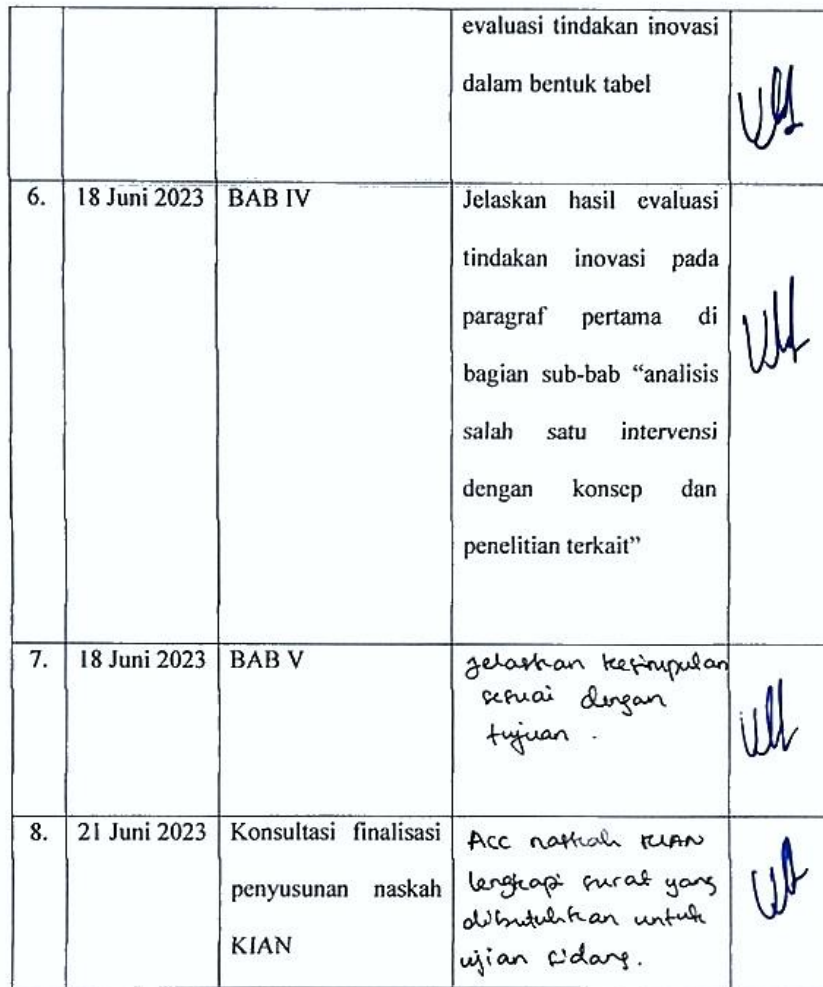 evaluasi tindakan inovasi
dalam bentuk tabel
6. 18 Juni 2023 BAB IV Jelaskan hasil evaluasi
tindakan inovasi pada
paragraf pertama di
bagian sub-bab “analisis
salah satu intervensi
dengan konsep dan
penelitian terkait”
7. 18 Juni 2023 BAB V Jelaskan kesimpulan
sesuai dengan
tujuan.
8. 21 Juni 2023 Konsultasi finalisasi Acc naskah KIAN
penyusunan naskah lengkapi surat yang
KIAN dibutuhkan untuk
ujian sidang.